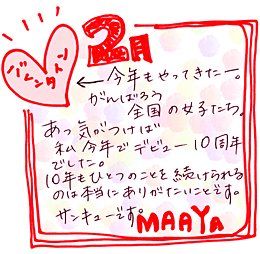 2月
バレンタイン
←今年もやってきたー。
がんばろう
全国の女子たち。
あっ気がつけば
私今年でデビュー10周年
でした。
10年もひとつのことを続けられる
のは本当にありがたいことです。
サンキューです。MAAYA